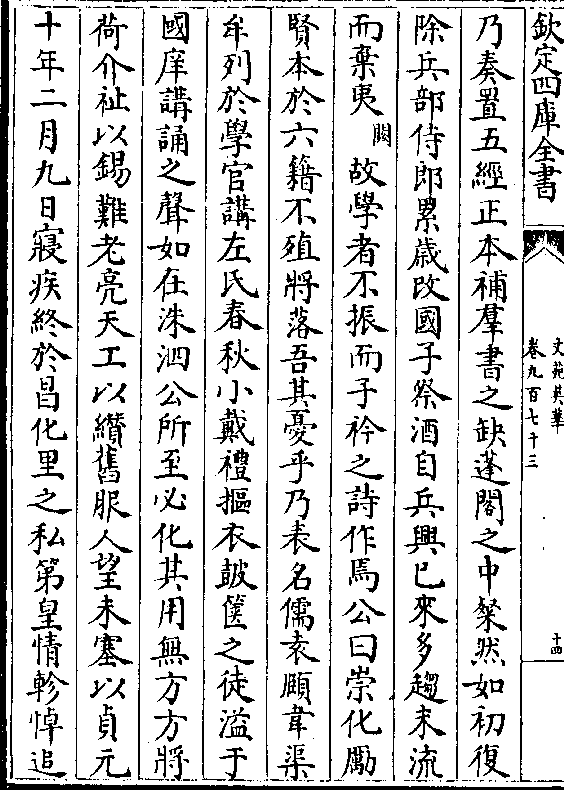 欽定四庫全書
文苑英華
卷九百七十三
十四
乃奏置五經正本補羣書之缺蓬閣之中粲然如初復
除兵部侍郎累歲改國子祭酒自兵興已來多趨末流
而棄夷闕故學者不振而子衿之詩作焉公曰崇化勵
賢本於六籍不殖將落吾其憂乎乃表名儒袁頥韋渠
牟列於學官講左氏春秋小戴禮摳衣皷篋之徒溢于
國庠講誦之聲如在洙泗公所至必化其用無方方將
荷介祉以錫難老亮天工以纘舊服人望未塞以貞元
十年二月九日寢疾終於昌化里之私第皇情軫悼追